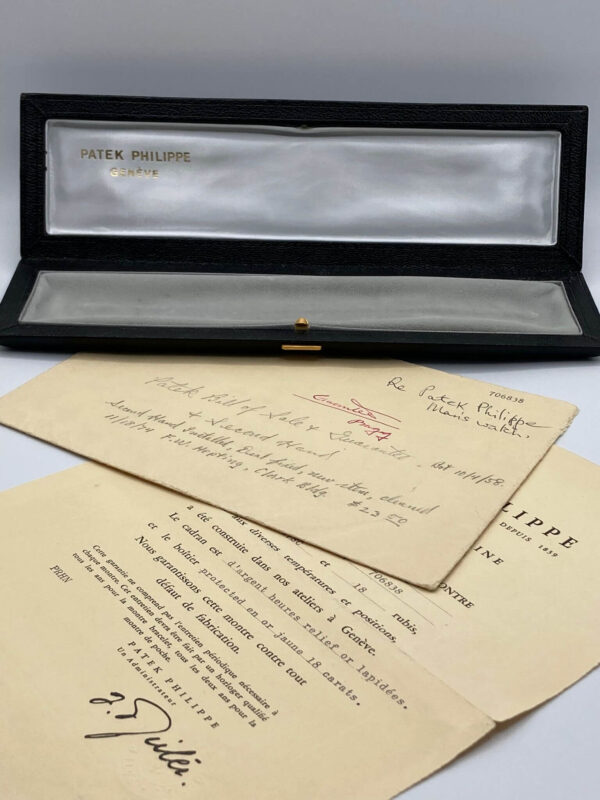 PATEK PHILIPPE
GENÈVE
706838
Re Patek Philippe
Man's watch.
Patek Bill of Sale & Guarantee. Bot 10/4/58.
& Second Hand
Second Hand Installed, Dial fixed, new stem, cleaned
11/18/74 F.W. Hepting, Clark Bldg. $23.50
LIPPE
DEPUIS 1839
INE
ONTRE
706838
18 rubis,
aux diverses températures et positions,
a été construite dans nos ateliers à Genève.
Le cadran est d'argent heures relief or lapidées.
et le boîtier protected en or jaune 18 carats.
Nous garantissons cette montre contre tout
défaut de fabrication.
Cette garantie ne comprend pas l'entretien périodique nécessaire à
chaque montre. Cet entretien devra être fait par un horloger qualifié
tous les ans pour la montre bracelet, tous les deux ans pour la
montre de poche.
PREN
PATEK PHILIPPE
Un Administrateur